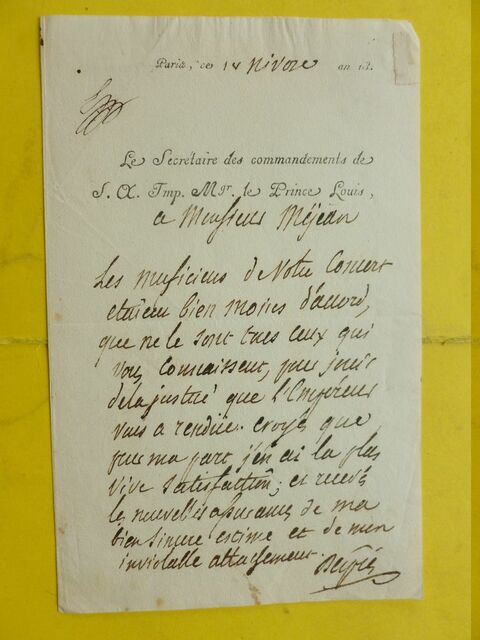 Paris, ce 18 Nivose an 13.
Le Secrétaire des commandements de
S. A. Imp. Mgr. le Prince Louis,
a Monsieur Méjean
Les musiciens de Notre Concert
etaient bien moins d'accord,
que ne le sont tous ceux qui
vous connaissent, pour jouir
de la justice que l'Empereur
vous a rendüe. croyés que
pour ma part j'en ai la plus
vive satisfaction; et recevés
les nouvelles assurances de ma
bien sincere estime et de mon
inviolable attachement.